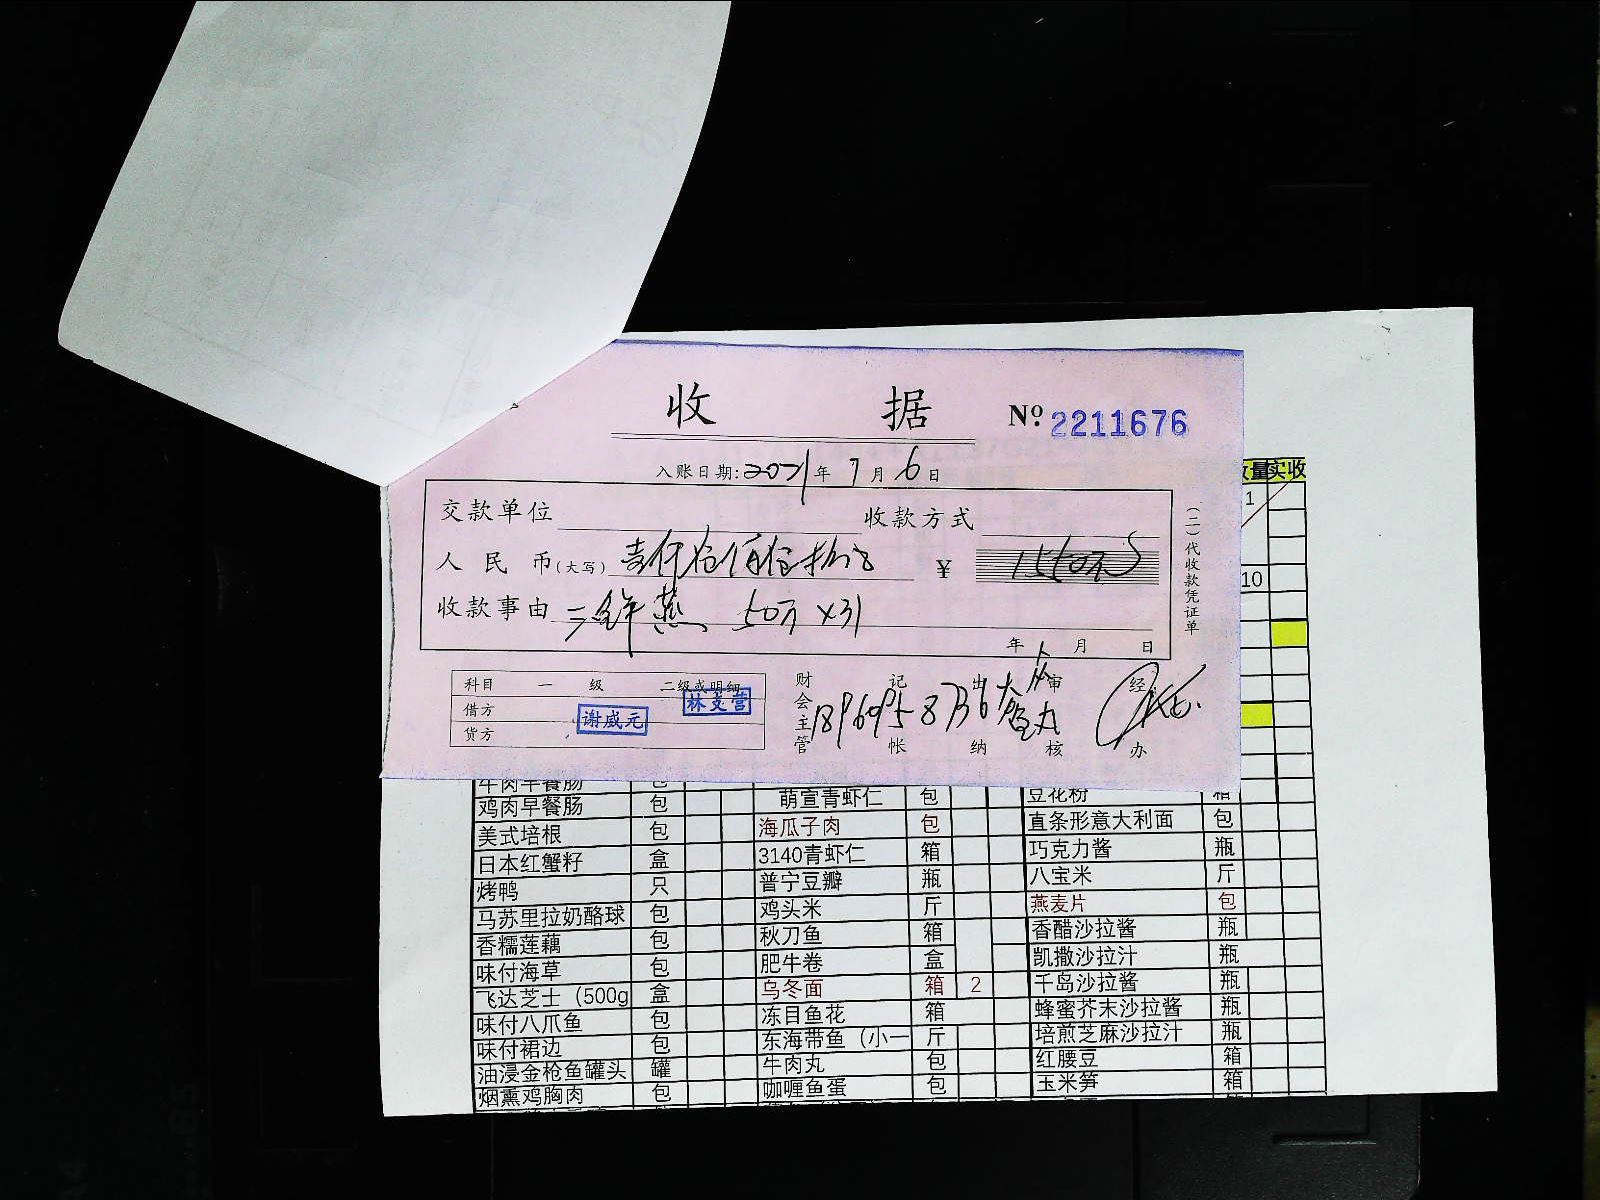 收 据 No. 2211676
入账日期: 2021年7月6日
交款单位 收款方式
人民币(大写) ¥
收款事由 三鲜燕 50元×31
年 月 日
(二)代收款凭证单
科目 一 级 二级或明细
借方
贷方
谢威元
林支营
财会主管 记帐 出纳 审核 经办
数量 实收
1
10
牛肉早餐肠 包
鸡肉早餐肠 包 萌宣青虾仁 包 豆花粉 箱
美式培根 包 海瓜子肉 包 直条形意大利面 包
日本红蟹籽 盒 3140青虾仁 箱 巧克力酱 瓶
烤鸭 只 普宁豆瓣 瓶 八宝米 斤
马苏里拉奶酪球 包 鸡头米 斤 燕麦片 包
香糯莲藕 包 秋刀鱼 箱 香醋沙拉酱 瓶
味付海草 包 肥牛卷 盒 凯撒沙拉汁 瓶
飞达芝士（500g 盒 乌冬面 箱 2 千岛沙拉酱 瓶
味付八爪鱼 包 冻目鱼花 箱 蜂蜜芥末沙拉酱 瓶
味付裙边 包 东海带鱼（小一 斤 培煎芝麻沙拉汁 瓶
油浸金枪鱼罐头 罐 牛肉丸 包 红腰豆 箱
烟熏鸡胸肉 包 咖喱鱼蛋 包 玉米笋 箱